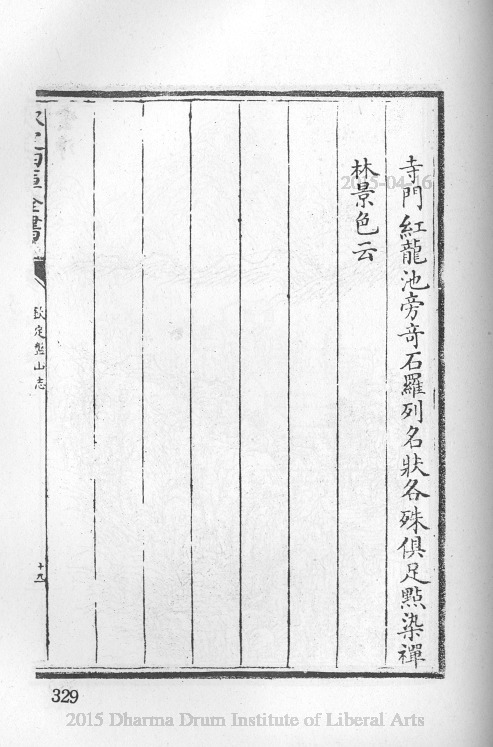 寺門紅龍池旁奇石羅列名狀各殊俱足點染禪
林景色云
欽定四庫全書
欽定盤山志
十九
329
2015-04-16
2015 Dharma Drum Institute of Liberal Arts